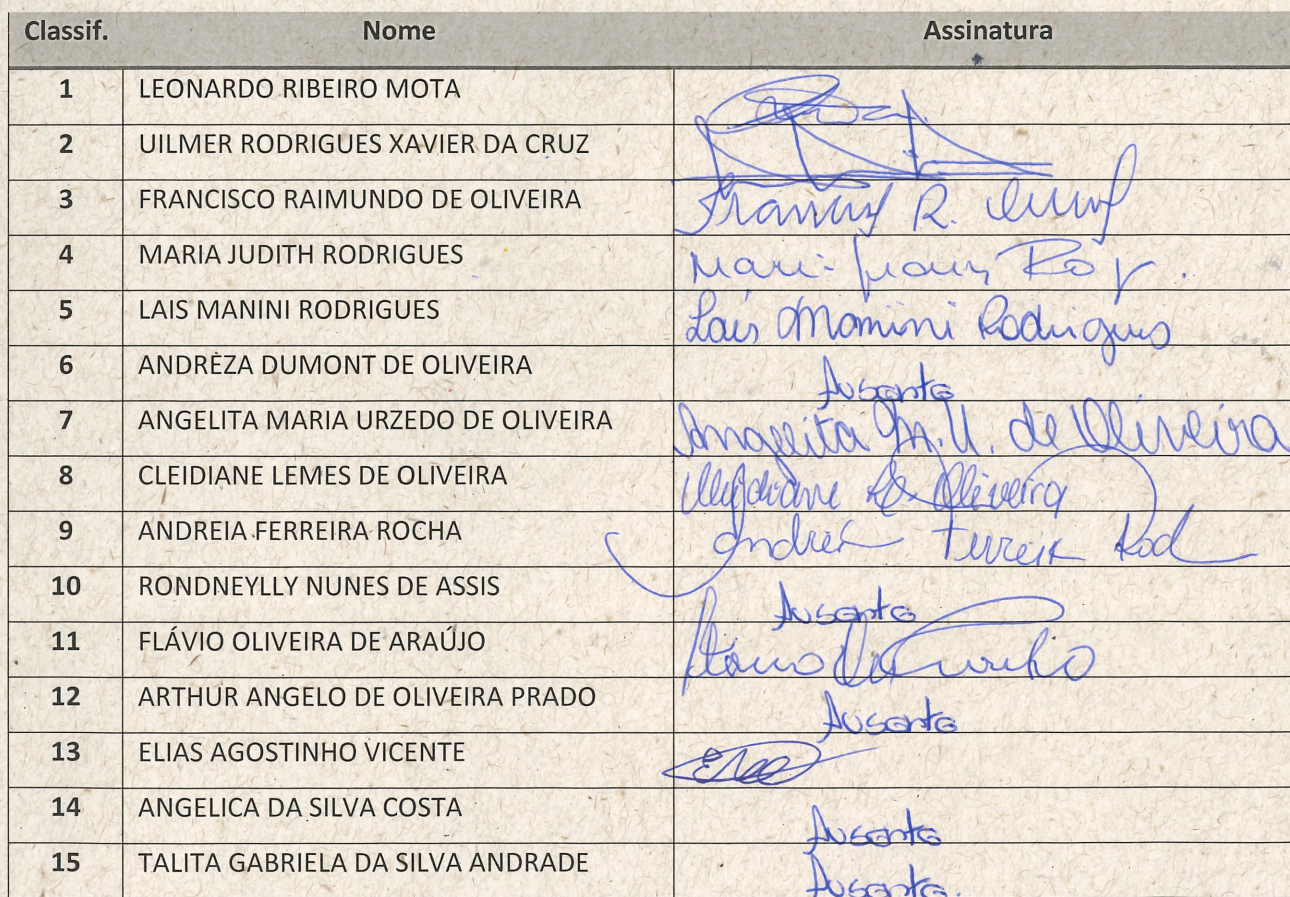 Classif. Nome Assinatura
1 LEONARDO RIBEIRO MOTA
2 UILMER RODRIGUES XAVIER DA CRUZ
3 FRANCISCO RAIMUNDO DE OLIVEIRA R.
4 MARIA JUDITH RODRIGUES
5 LAIS MANINI RODRIGUES Laís Manini Rodrigues
6 ANDRÈZA DUMONT DE OLIVEIRA Ausente
7 ANGELITA MARIA URZEDO DE OLIVEIRA Angelita M. U. de Oliveira
8 CLEIDIANE LEMES DE OLIVEIRA Oliveira
9 ANDREIA FERREIRA ROCHA
10 RONDNEYLLY NUNES DE ASSIS Ausente
11 FLÁVIO OLIVEIRA DE ARAÚJO
12 ARTHUR ANGELO DE OLIVEIRA PRADO Ausente
13 ELIAS AGOSTINHO VICENTE
14 ANGELICA DA SILVA COSTA Ausente
15 TALITA GABRIELA DA SILVA ANDRADE Ausente.